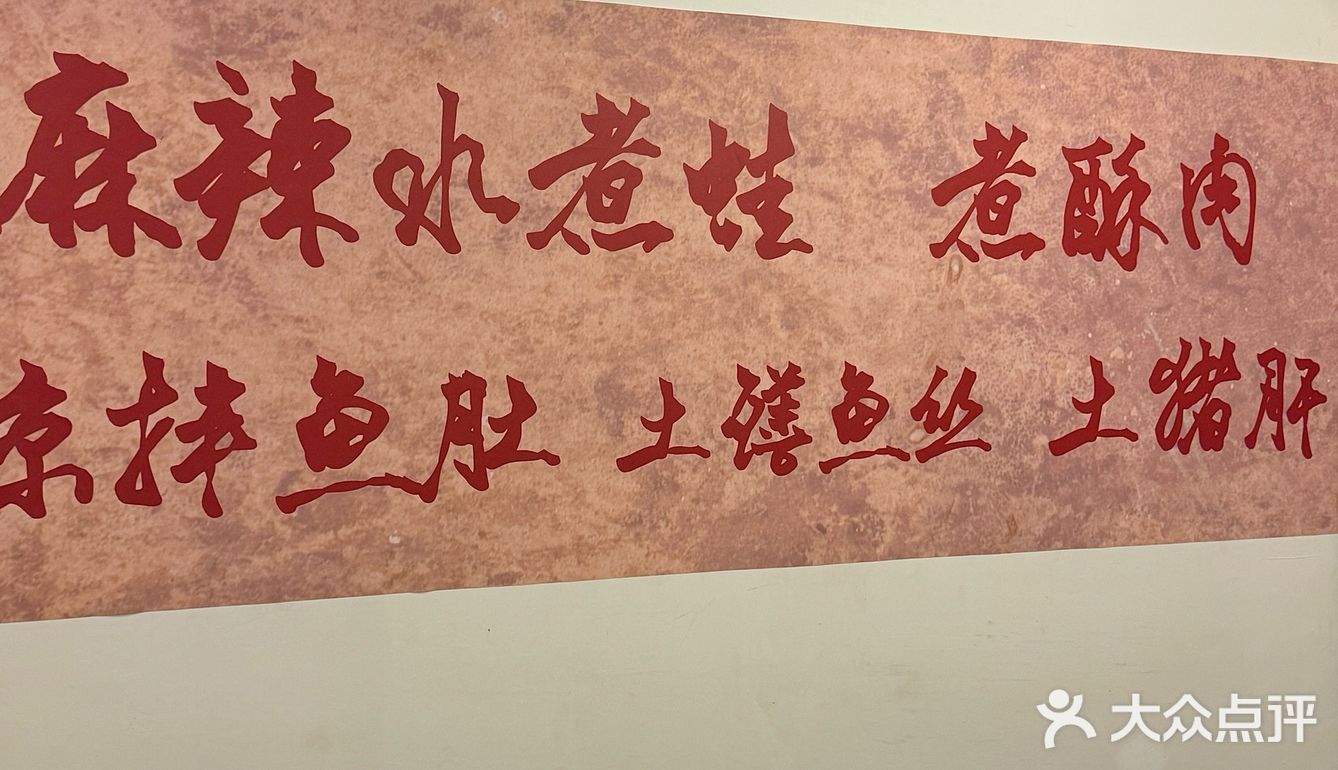 麻辣水煮蛙 煮酥肉
凉拌鱼肚 土鳝鱼丝 土猪肝
大众点评